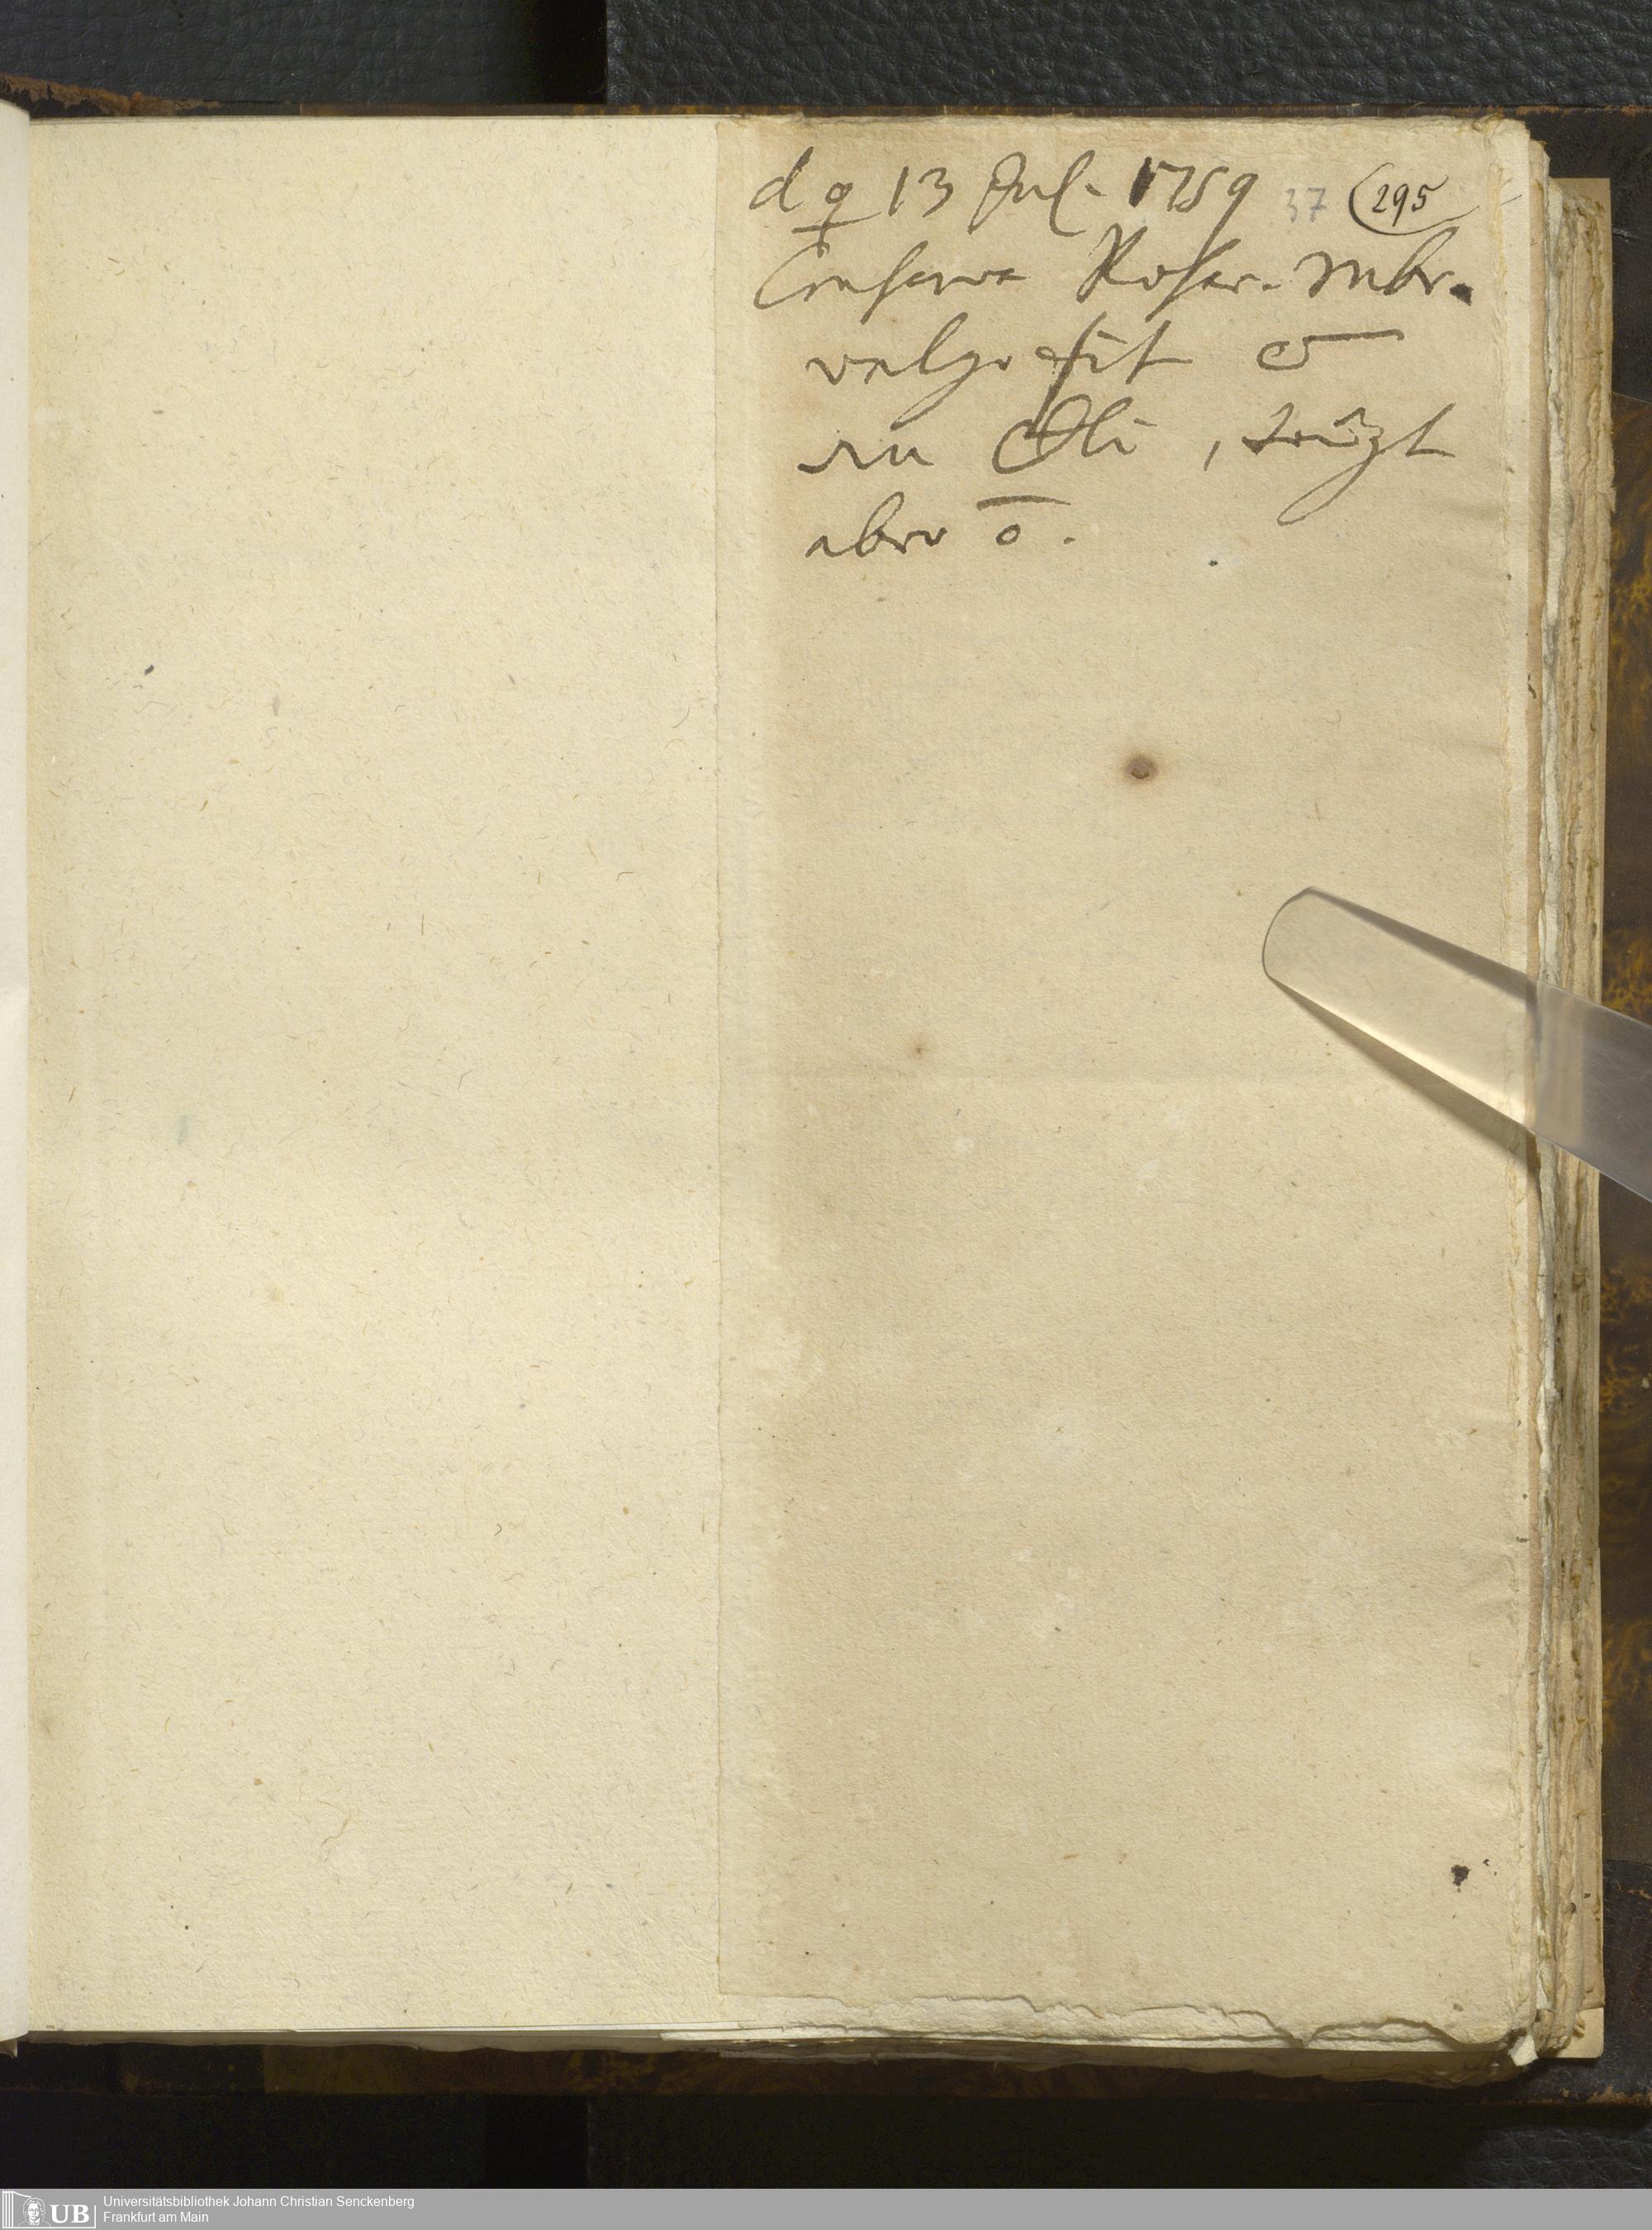 d ♀ 13 Jul. 1759 37 (295
Conserva Rosar. rubr.
vulgo fit c
Oli
aber ō.
UB Universitätsbibliothek Johann Christian Senckenberg
Frankfurt am Main